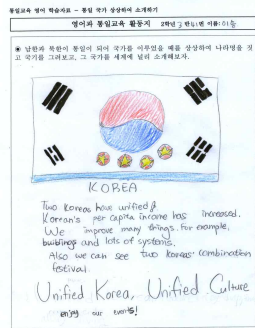 통일교육 영어 학습자료 - 통일 국가 상상하여 소개하기
영어과 통일교육 활동지 2학년 3반 4번 이름:이슬
◉ 남한과 북한이 통일이 되어 국가를 이루었을 때를 상상하여 나라명을 짓
고 국기를 그려보고, 그 국가를 세계에 널리 소개해보자.
KOREA
Two Koreas have unified
Korean's per capita income has increased.
We improve many things. For example,
buildings and lots of systems.
Also we can see two Koreas' combination
festival.
Unified Korea, Unified Culture
enjoy our events!